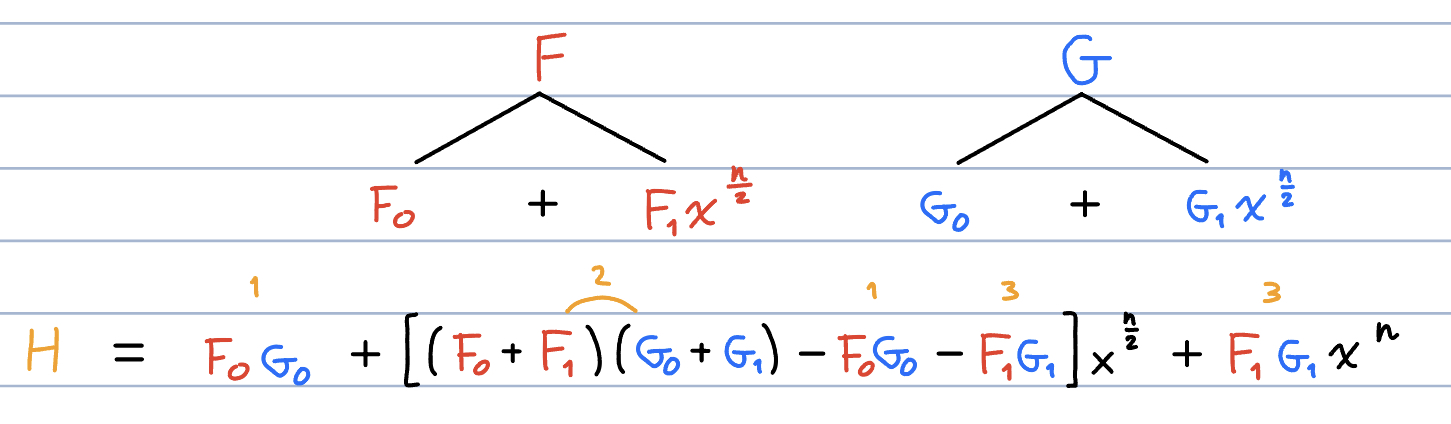 F G
F₀ + F₁x^{n/2} G₀ + G₁x^{n/2}
1 2 1 3 3
H = F₀G₀ + [(F₀ + F₁)(G₀ + G₁) − F₀G₀ − F₁G₁]x^{n/2} + F₁G₁x^n